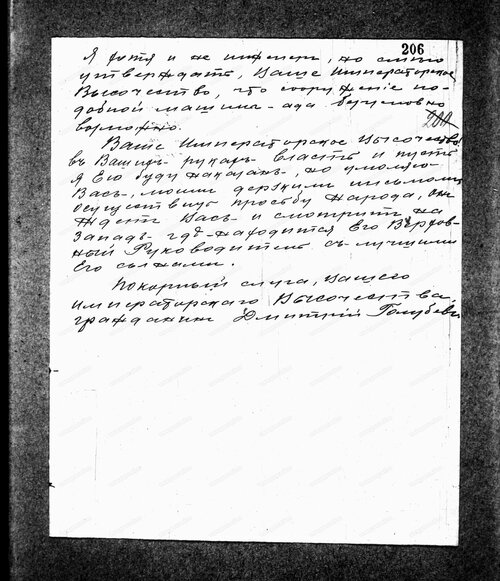 206
Я хотя и не инженеръ, но смѣло
утверждать, Ваше Императорское
Высочество, что сооруженіе по-
добной машины-ада безусловно
возможно.
200
Ваше Императорское Высочество,
въ Вашихъ рукахъ власть и пусть
я Ею буду наказанъ, но умоляю
Васъ, моимъ дерзкимъ письмомъ,
осуществить просьбу народа, онъ
ждетъ Васъ и смотритъ на
Западъ гдѣ находится Его Верхов-
ный Руководитель съ лучшими
Его сынами.
Покорный слуга, Вашего
Императорскаго Высочества,
гражданинъ Дмитрій Голубевъ